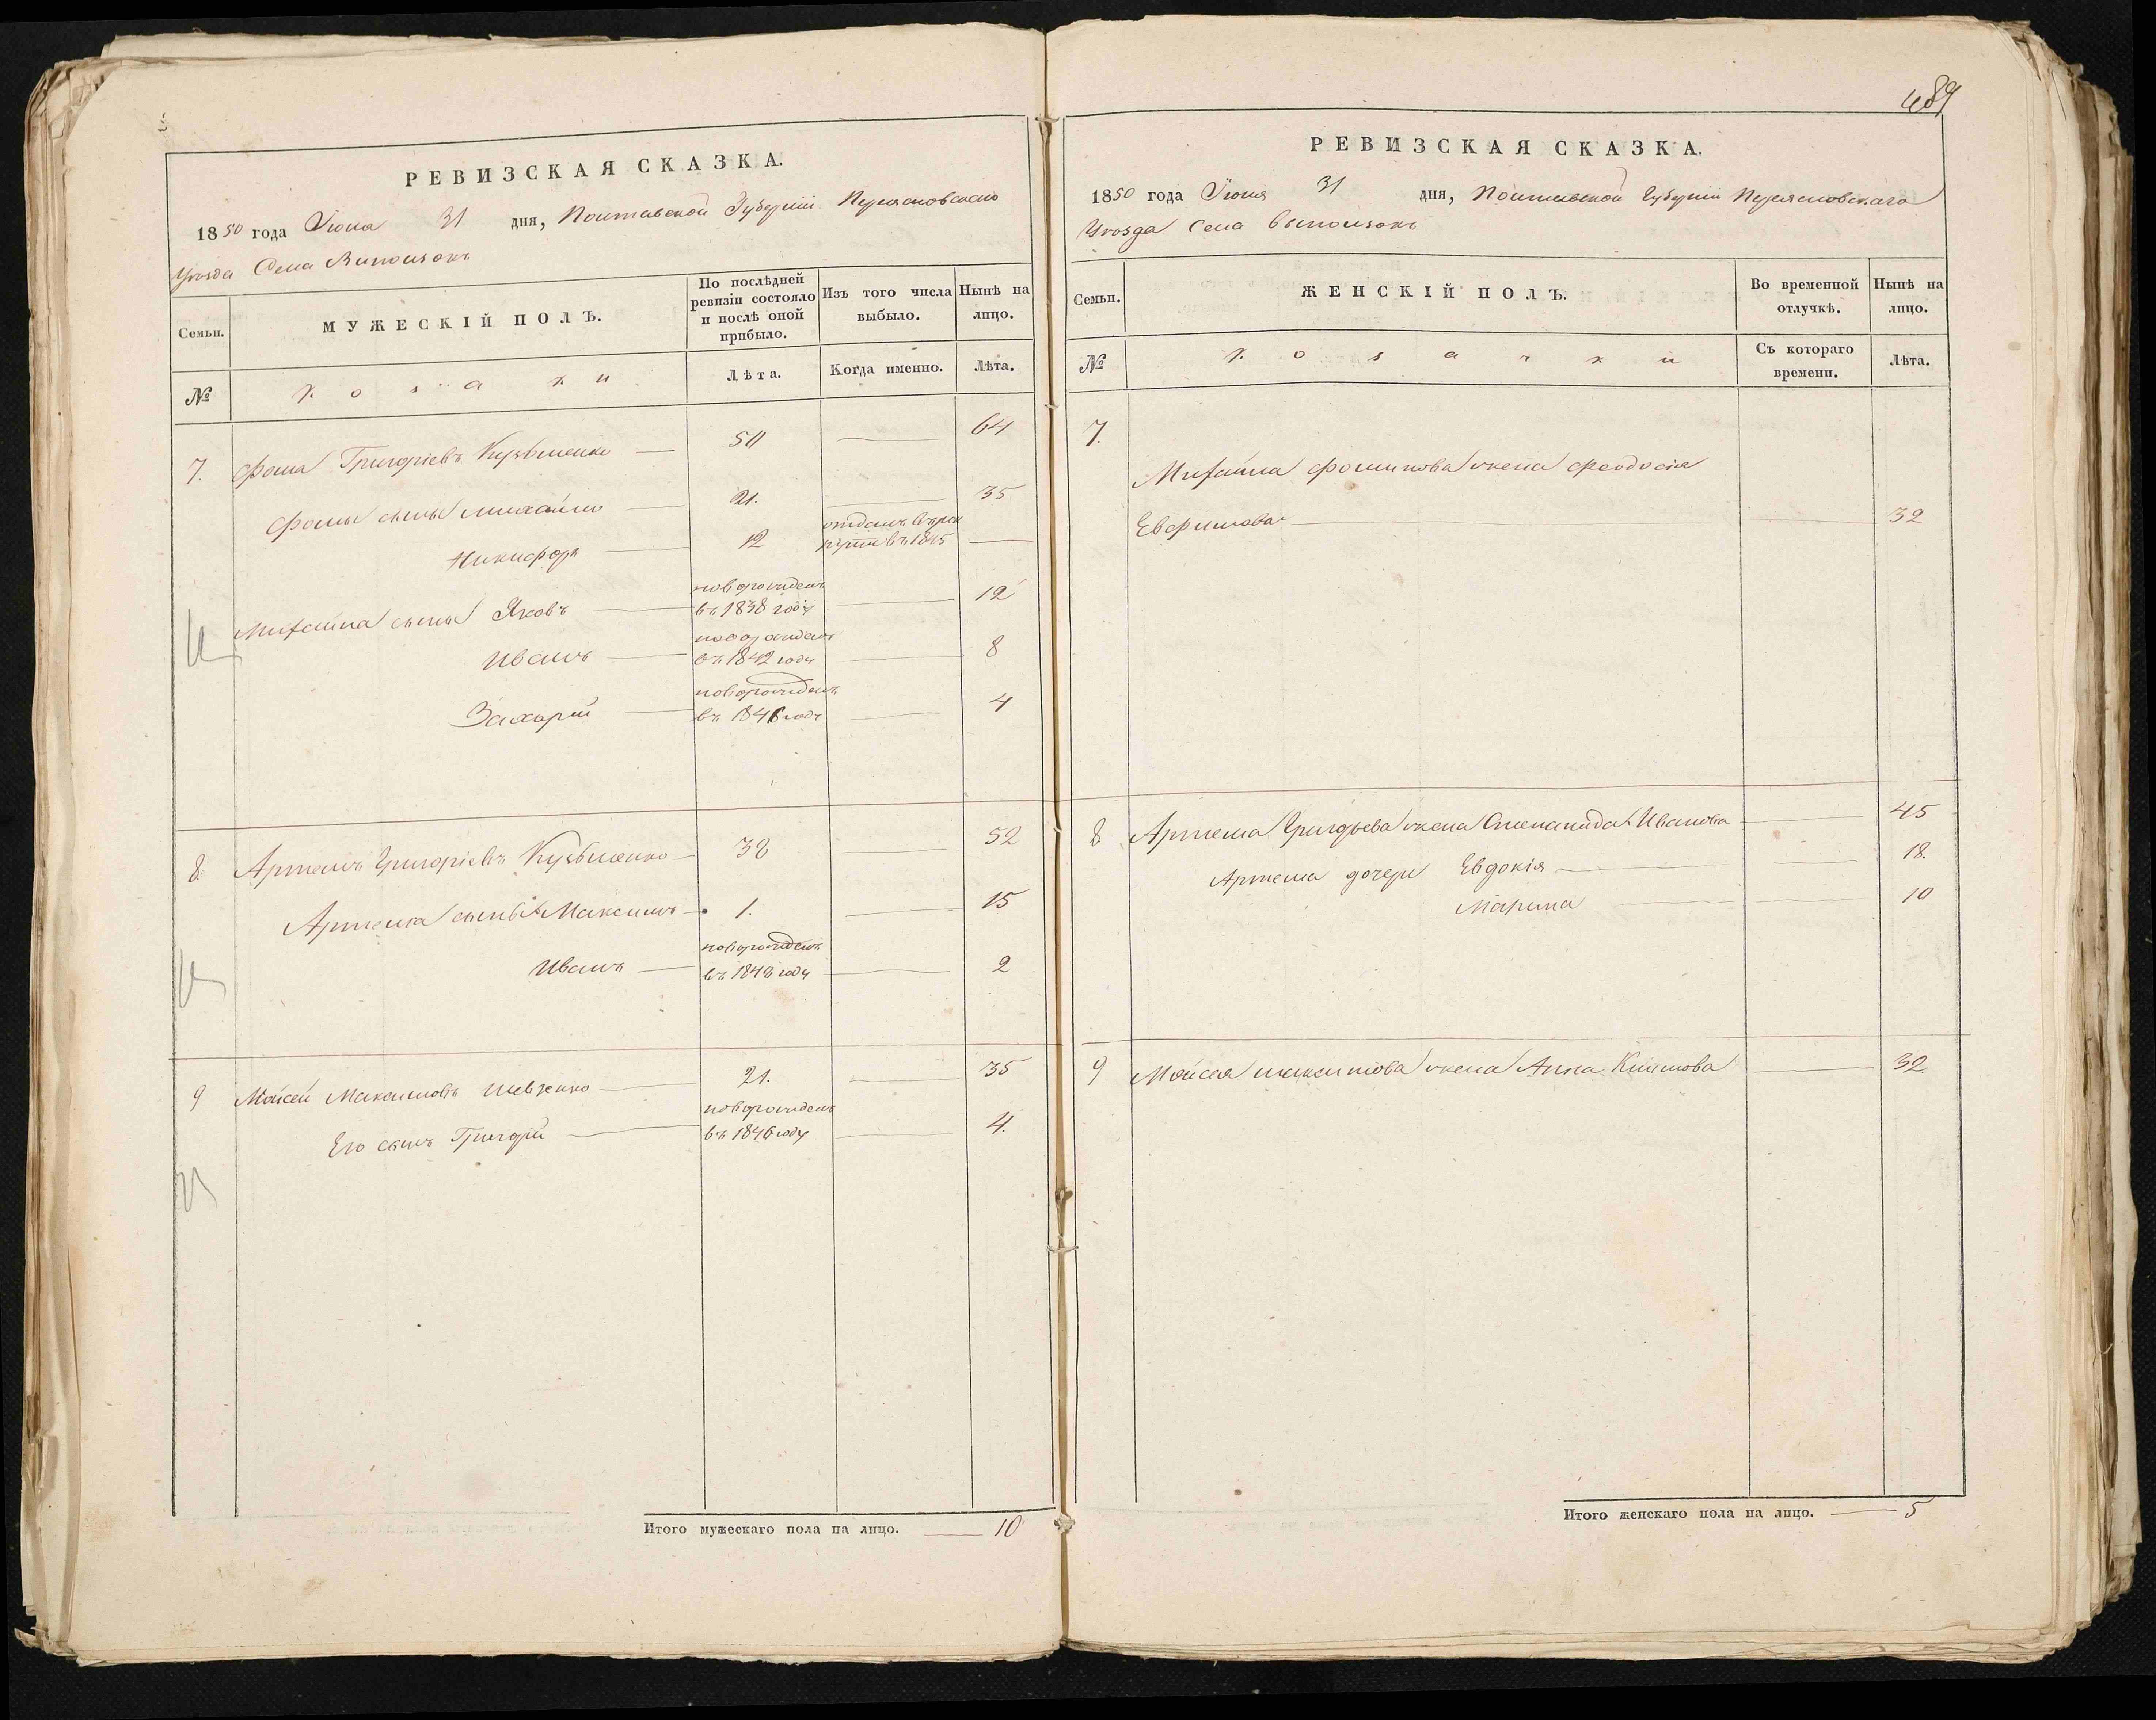 489
РЕВИЗСКАЯ СКАЗКА.
1850 года Июня 31 дня, Полтавской Губерніи Переяславскаго
Уезда Села Виползокъ
Семьи.
МУЖЕСКІЙ ПОЛЪ.
По послѣдней ревизіи состояло и послѣ оной прибыло.
Изъ того числа выбыло.
Нынѣ на лицо.
№
Козаки
Лѣта.
Когда именно.
Лѣта.
7. Фома Григоріевъ Кузьменко — 50 — 64
Фомы сыны Михайло — 21. — 35
Никифоръ — 12 отданъ въ рекруты въ 1845 —
Михайла сыны Яковъ — новорожденъ въ 1838 году — 12
Иванъ — новорожденъ въ 1842 году — 8
Захарій — новорожденъ въ 1846 году — 4
8. Артемъ Григоріевъ Кузьменко — 38 — 52
Артема сыны Максимъ — 1. — 15
Иванъ — новорожденъ въ 1848 году — 2
9 Мойсей Максимовъ Шевченко — 21. — 35
Его сынъ Григорій — новорожденъ въ 1846 году — 4.
Итого мужескаго пола на лицо. — 10
РЕВИЗСКАЯ СКАЗКА.
1850 года Июня 31 дня, Полтавской Губерніи Переяславскаго
Уезда Села Выползокъ
Семьи.
ЖЕНСКІЙ ПОЛЪ.
Во временной отлучкѣ.
Нынѣ на лицо.
№
Козачки
Съ котораго времени.
Лѣта.
7.
Михайла Фоминова жена Феодосія
Ефимова — 32
8 Артема Григорьева жена Степанида Иванова — 45
Артема дочери Евдокія — 18.
Марина — 10
9 Мойсея Максимова жена Анна Климова — 32
Итого женскаго пола на лицо. — 5